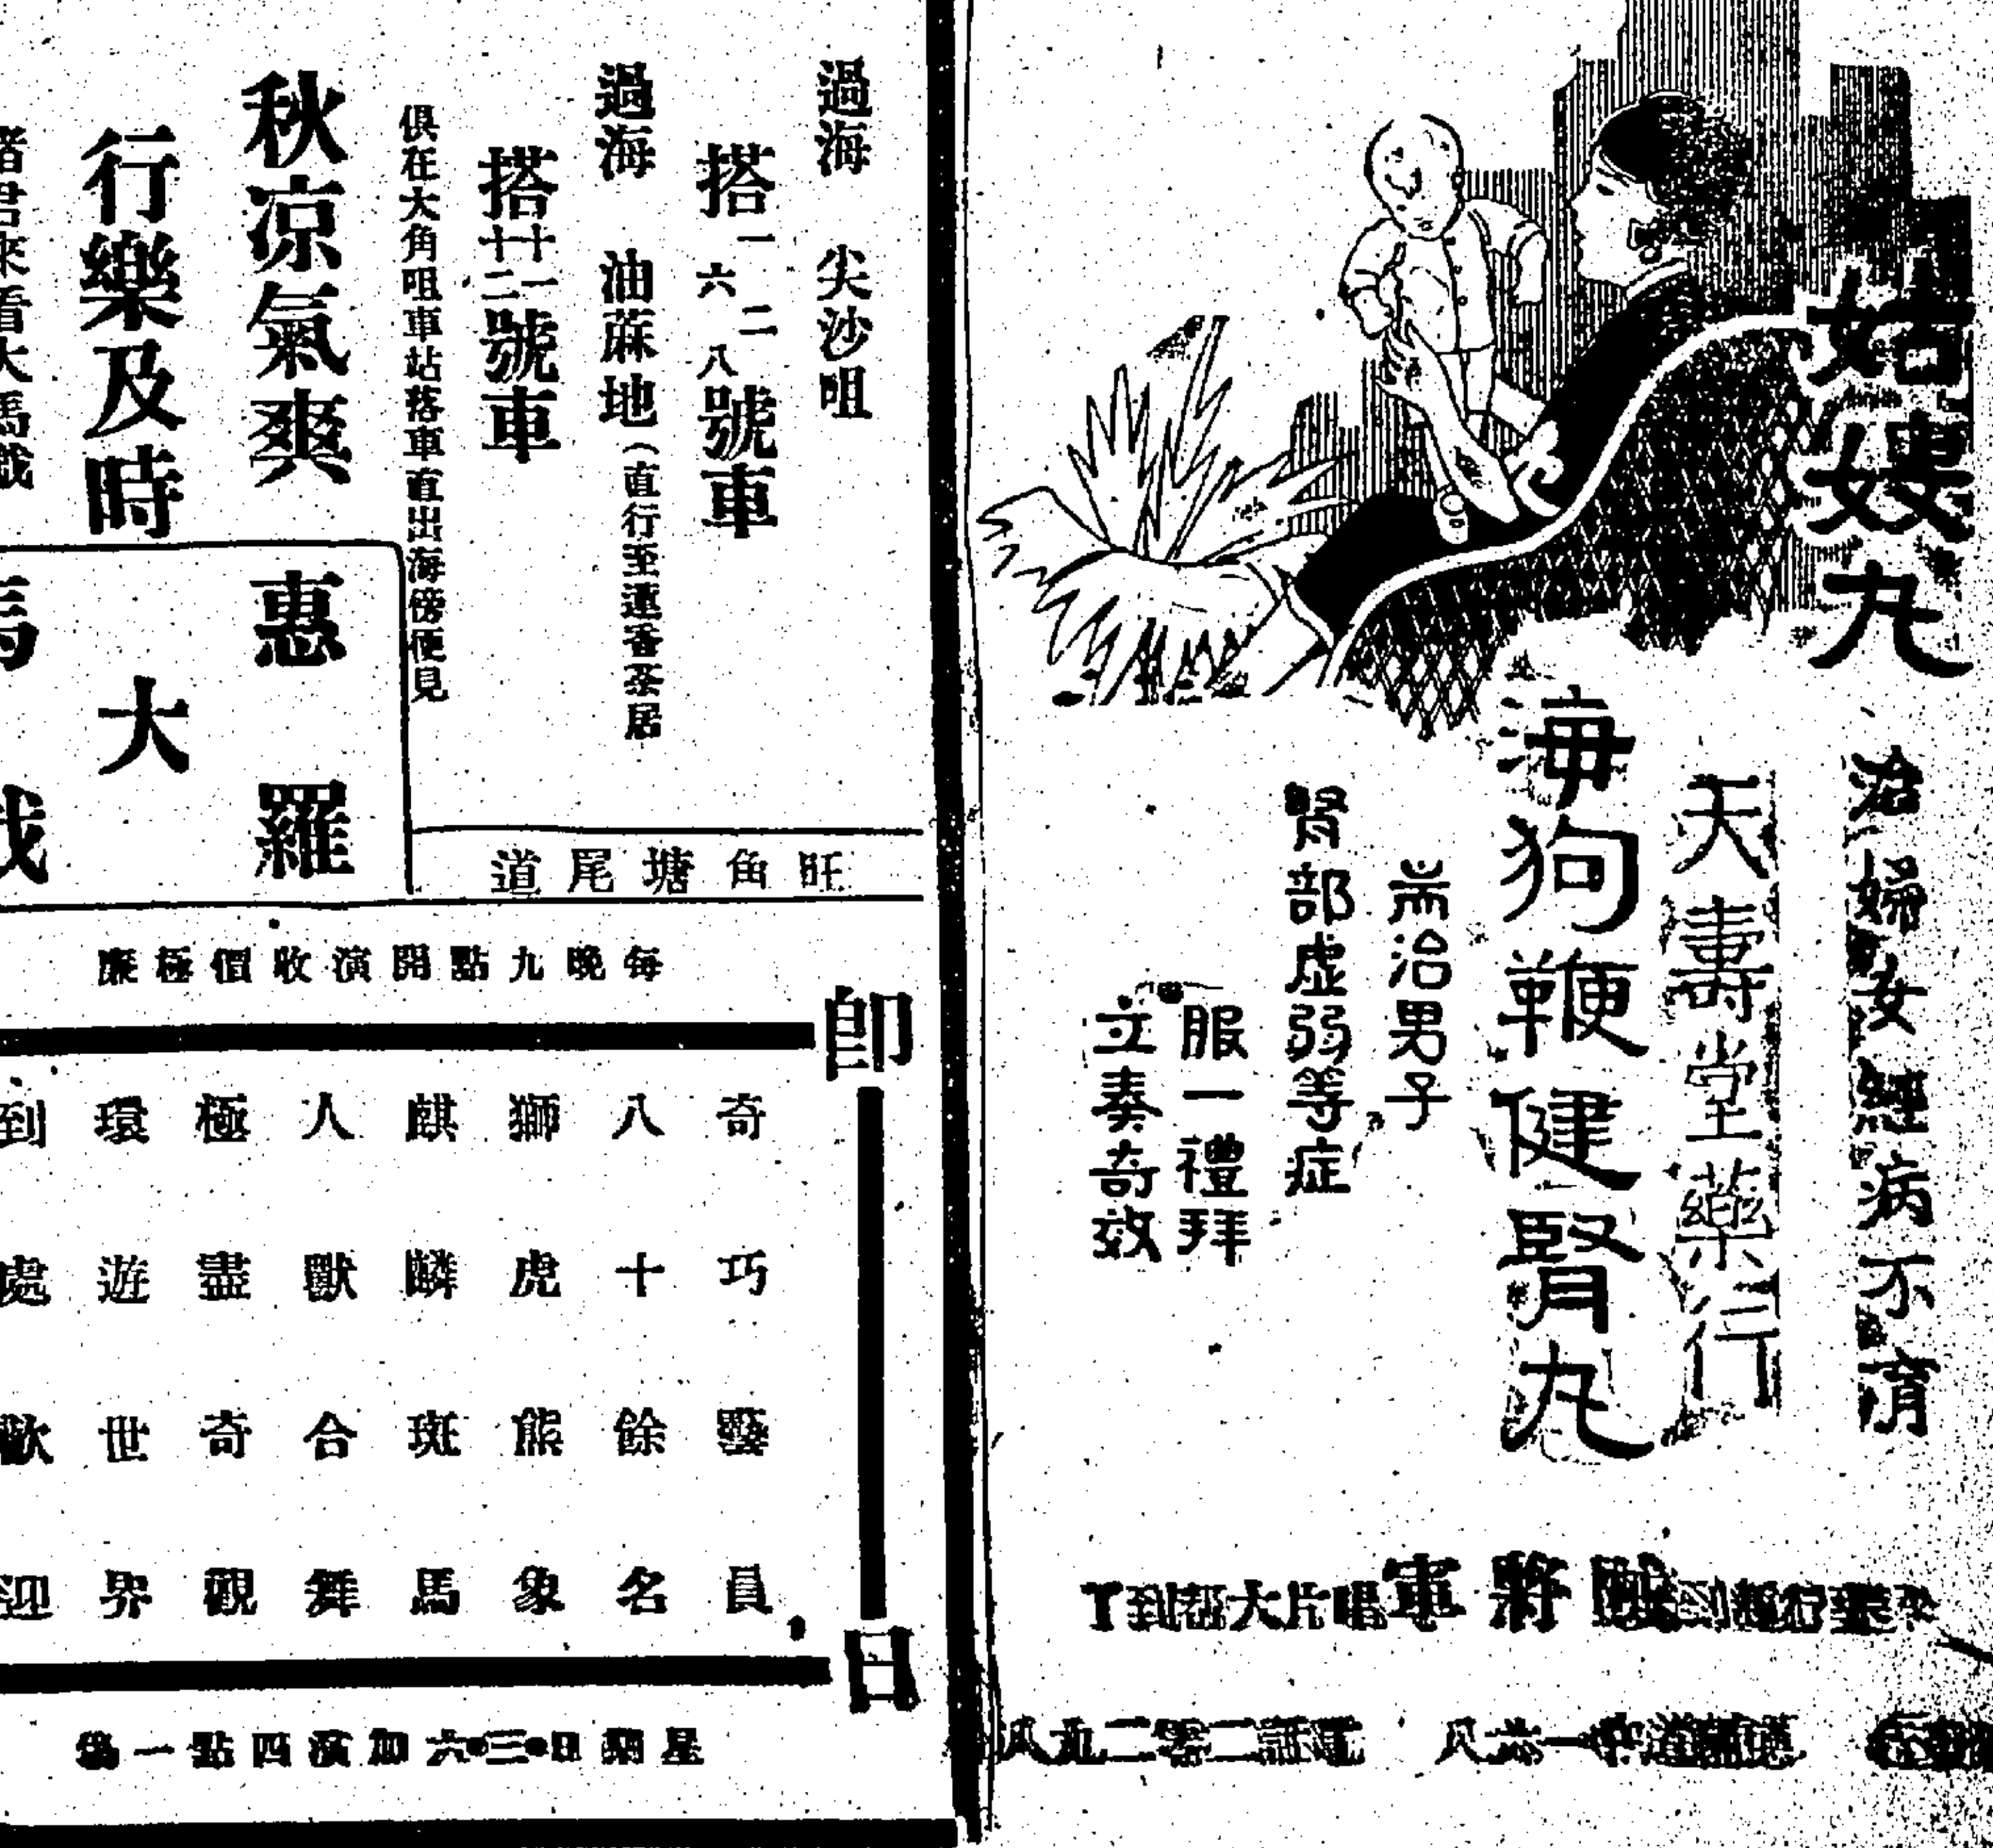 姑嫂丸
治婦女經病不育
天壽堂藥行
海狗鞭健腎丸
耑治男子
腎部虛弱等症
服一禮拜
立奏奇效
將軍唱片大帮到了
電話二零二九八
過海 尖沙咀
搭一二六八號車
過海 油蔴地(直行至蓮香茶居
搭十一十二號車
俱在大角咀車站落車直出海傍便見
秋凉氣爽
行樂及時
諸君來看大馬戲
惠羅
大
馬戲
旺角塘尾道
每晚九點開演收價極廉
即日
奇巧藝員
八十餘名
獅虎熊象
麒麟斑馬
人獸合舞
極盡奇觀
環遊世界
到處歡迎
星期日三六加演四點一場